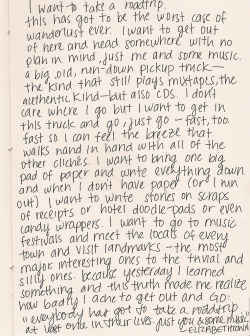 I want to take a roadtrip.
this has got to be the worst case of
wanderlust ever. I want to get out
of here and head somewhere with no
plan in mind, just me and some music.
a big, old, run-down pickup truck—
the kind that still plays mixtapes, the
authentic kind—but also CDs. I don't
care where I go but I want to get in
this truck and go, just go — fast, too.
fast so I can feel the breeze that
walks hand in hand with all of the
other clichés. I want to bring one big
pad of paper and write everything down.
and when I don't have paper (or I run
out) I want to write stories on scraps
of receipts or hotel doodle-pads or even
candy wrappers. I want to go to music
festivals and meet the locals of every
town and visit landmarks—the most
major, interesting ones to the trivial and
silly ones. because yesterday I learned
something and this truth made me realize
how badly I ache to get out and Go:
"everybody has got to take a roadtrip,
at least once in their lives. just you & some music."
ELIZABETHTOWN